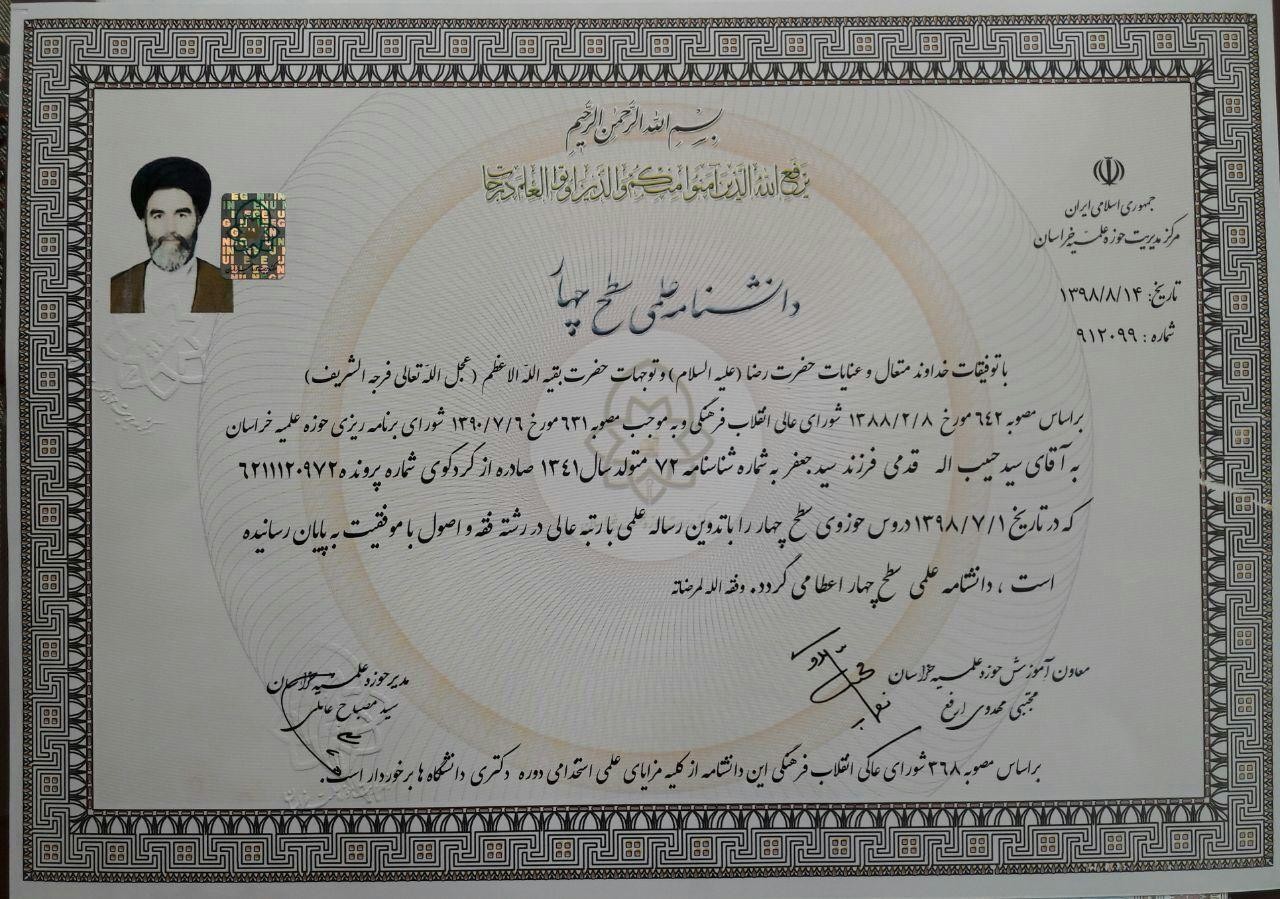 بسم الله الرحمن الرحیم
یرفع الله الذین آمنوا منکم والذین اوتوا العلم درجات
جمهوری اسلامی ایران
مرکز مدیریت حوزه علمیه خراسان
تاریخ: ۱۳۹۸/۸/۱۴
شماره : ۹۱۲۰۹۹
دانشنامه علمی سطح چهار
با توفیقات خداوند متعال و عنایات حضرت رضا (علیه السلام) و توجهات حضرت بقیه الله الاعظم (عجل الله تعالی فرجه الشریف)
براساس مصوبه ۶۴۲ مورخ ۱۳۸۸/۲/۸ شورای عالی انقلاب فرهنگی و به موجب مصوبه ۶۳۱ مورخ ۱۳۹۰/۷/۶ شورای برنامه ریزی حوزه علمیه خراسان
به آقای سید حبیب اله قدمی فرزند سید جعفر به شماره شناسنامه ۷۲ متولد سال ۱۳۴۱ صادره از کردکوی شماره پرونده ۶۲۱۱۱۲۰۹۷۲
که در تاریخ ۱۳۹۸/۷/۱ دروس حوزوی سطح چهار را با تدوین رساله علمی با رتبه عالی در رشته فقه و اصول با موفقیت به پایان رسانیده
است ، دانشنامه علمی سطح چهار اعطا می گردد. وفقه الله لمرضاته
معاون آموزش حوزه علمیه خراسان
مجتبی مهدوی ارفع
مدیر حوزه علمیه خراسان
سید مصباح عاملی
براساس مصوبه ۳۶۸ شورای عالی انقلاب فرهنگی این دانشنامه از کلیه مزایای علمی استخدامی دوره دکتری دانشگاه ها برخوردار است.